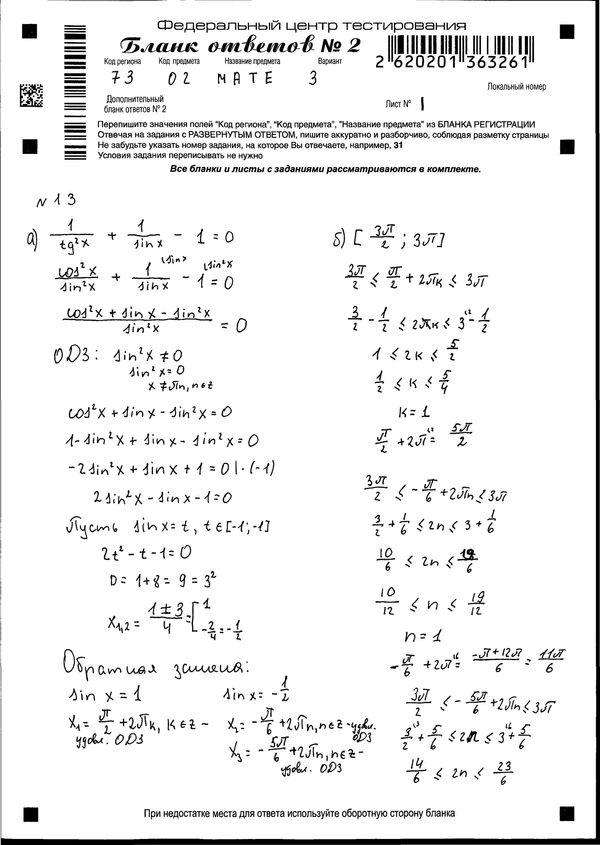 Федеральный центр тестирования
Бланк ответов № 2
2 620201 363261
Код региона Код предмета Название предмета Вариант
73 02 МАТЕ 3
Локальный номер
Дополнительный
бланк ответов № 2
Лист № 1
Перепишите значения полей "Код региона", "Код предмета", "Название предмета" из БЛАНКА РЕГИСТРАЦИИ
Отвечая на задания с РАЗВЕРНУТЫМ ОТВЕТОМ, пишите аккуратно и разборчиво, соблюдая разметку страницы
Не забудьте указать номер задания, на которое Вы отвечаете, например, 31
Условия задания переписывать не нужно
Все бланки и листы с заданиями рассматриваются в комплекте.
N 13
а) 1/tg²x + 1/sinx - 1 = 0
cos²x/sin²x + 1/sinx - 1 = 0
(cos²x + sinx - sin²x)/sin²x = 0
ОДЗ: sin²x ≠ 0
sin²x = 0
x ≠ πn, n∈z
cos²x + sinx - sin²x = 0
1 - sin²x + sinx - sin²x = 0
-2sin²x + sinx + 1 = 0 |·(-1)
2sin²x - sinx - 1 = 0
Пусть sinx = t, t∈[-1;-1]
2t² - t - 1 = 0
D = 1+8 = 9 = 3²
x₁,₂ = (1±3)/4 = [1
-2/4 = -1/2
Обратная замена:
sin x = 1 sinx = -1/2
x₁ = π/2 + 2πк, к∈z - x₂ = -π/6 + 2πn, n∈z - удовл.
удовл. ОДЗ ОДЗ
x₃ = -5π/6 + 2πn, n∈z -
удовл. ОДЗ
б) [3π/2; 3π]
3π/2 ≤ π/2 + 2πк ≤ 3π
3/2 - 1/2 ≤ 2πк ≤ 3 - 1/2
1 ≤ 2к ≤ 5/2
1/2 ≤ к ≤ 5/4
к = 1
π/2 + 2π = 5π/2
3π/2 ≤ -π/6 + 2πn ≤ 3π
3/2 + 1/6 ≤ 2n ≤ 3 + 1/6
10/6 ≤ 2n ≤ 19/6
10/12 ≤ n ≤ 19/12
n = 1
-π/6 + 2π = (-π+12π)/6 = 11π/6
3π/2 ≤ -5π/6 + 2πn ≤ 3π
3/2 + 5/6 ≤ 2n ≤ 3 + 5/6
14/6 ≤ 2n ≤ 23/6
При недостатке места для ответа используйте оборотную сторону бланка